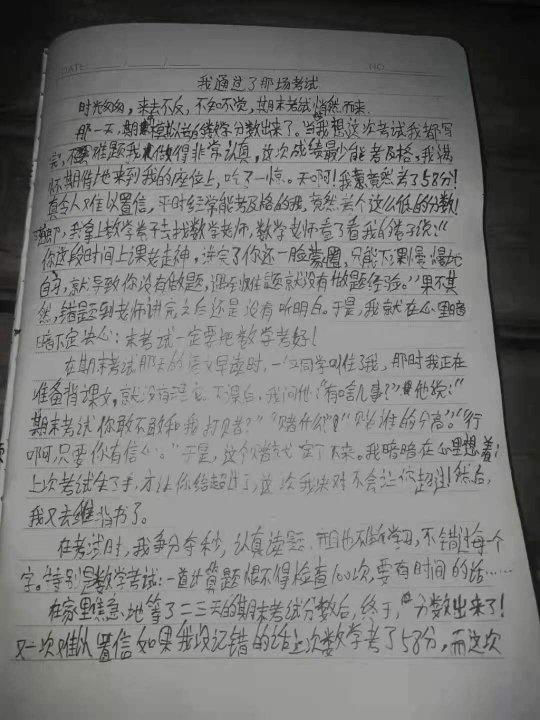 DATE / / NO
我通过了那场考试
时光匆匆，来去不反，不知不觉，期末考试悄然而来。
那一天，期末模拟考的数学分数出来了。当我想这次考试我都写
完，难题我做得非常认真，这次成绩最少能考及格，我满
怀期待地来到我的座位上，吃了一惊。天啊！我竟然考了58分！
真令人难以置信，平时经常能考及格的我，竟然考个这么低的分数！
我拿上数学卷子去找数学老师，数学老师看了看我的卷子说："
你这段时间上课老走神，讲完了你还一脸蒙圈，只能下课慢慢地
自学，就导致你没有做题，遇到难题就没有做题经验。"果不其
然，错题到老师讲完之后还是没有听明白。于是，我就在心里暗
暗下定决心：末考试一定要把数学考好！
在期末考试那天的语文早读时，一位同学叫住了我，那时我正在
准备背课文，就没有理他，下课后，我问他："有啥儿事？"他说："
期末考试你敢不敢和我打赌？""赌什么？""赌谁的分高。""行
啊只要你有信心。"于是，这个赌就定了下来。我暗暗在心里想着：
上次考试失了手，才让你给超过了，这次我绝对不会让你超过！然后，
我又去背书了。
在考试时，我争分夺秒，认真读题，而且也不断学习，不错过每个
字。特别是数学考试：一道计算题恨不得检查100次，要有时间的话……
在家里焦急地等了二三天的期末考试分数后，终于，分数出来了！
又一次难以置信如果我没记错的话上次数学考了58分，而这次